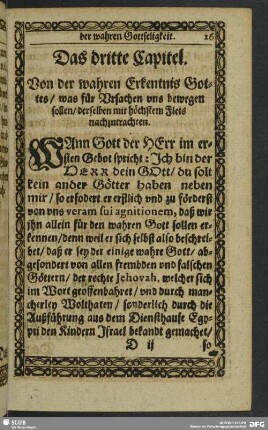 der wahren Gottseligkeit. 16
Das dritte Capitel.
Von der wahren Erkentnis Got-
tes / was für Vrsachen vns bewegen
sollen / derselben mit höchstem Fleis
nachzutrachten.
WAnn Gott der HErr im er-
sten Gebot spricht: Ich bin der
HERR dein GOtt / du solt
kein ander Götter haben neben
mir / so erfodert er erstlich vnd zu förderst
von vns veram sui agnitionem, daß wir
jhn allein für den wahren Gott sollen er-
kennen / denn weil er sich selbst also beschrei-
bet / daß er sey der einige wahre Gott / ab-
gesondert von allen frembden vnd falschen
Göttern / der rechte Jehovah, welcher sich
im Wort geoffenbahret / vnd durch man-
cherley Wolthaten / sonderlich durch die
Außführung aus dem Diensthause Egy-
pti den Kindern Jsrael bekandt gemachet /
D ij so
SLUB
DFG